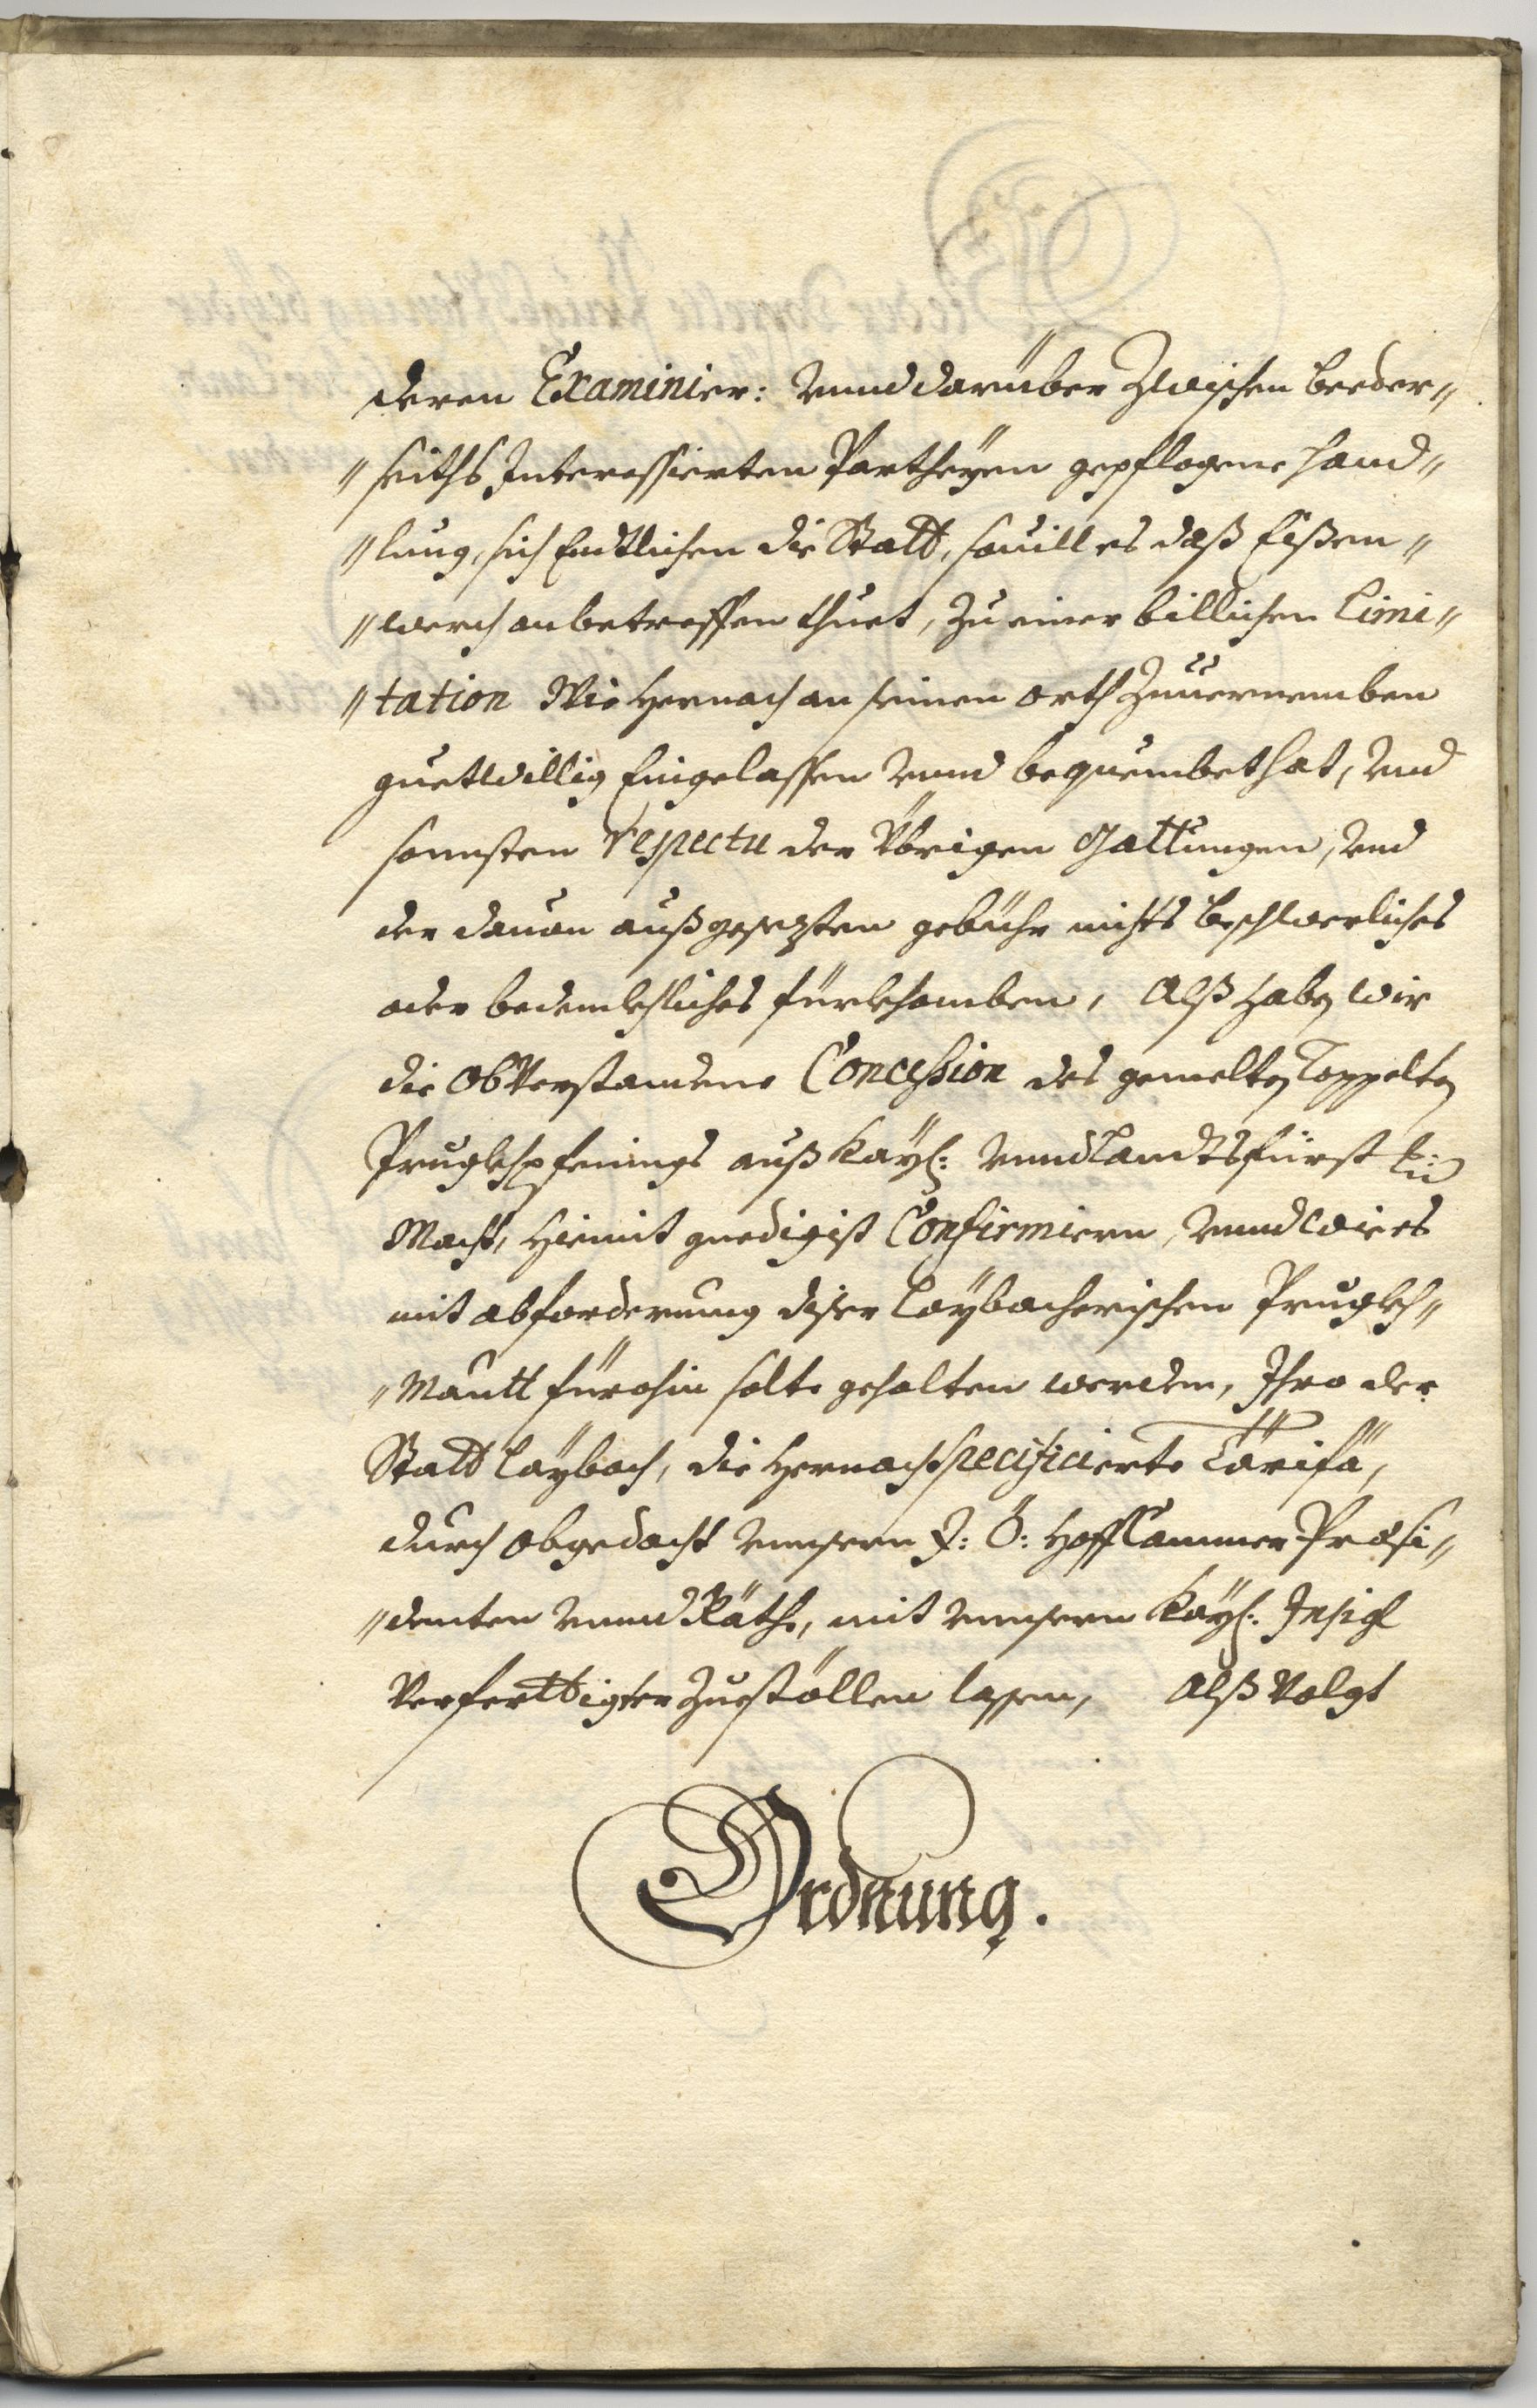 deren Examinier: vnnd darüber Zwischen beeder〃
〃seiths Interessierten Partheÿen gepflogene hand〃
〃lung, sich Endtlichen die Statt, souill es daß Eißen〃
〃werch anbetreffen thuet, zu einer billichen Limi〃
〃tation Wie hernach an seinen orth Zuuernemben
guetwillig Eingelassen vnnd bequembt hat, vnd
sonnsten respectu der Vbrigen Gattungen, vnd
der dauon außgesezten gebühr nichts beschwerliches
oder bedenckhliches fürkhomben, Alß haben wir
die obverstandene Concession des gemelten Toppelten
Pruggkhpfenings auß Kaÿl: vnnd Landtsfürstl:
Macht, hiemit gnedigist Confirmiern, vnnd wie es
mit abforderung diser Laÿbacherischen Pruggkh〃
〃Mautt fürohin solte gehalten werden, Ihro der
Statt Laÿbach, die hernach specificierte Tariffa,
durch obgedacht vnnsern I: Ö: HoffCammer Præsi〃
〃denten vnnd Räthe, mit vnnsern Kaÿl: Insigl
verferttigter Zueställen lassen, Alß Volgt
Ordnung.